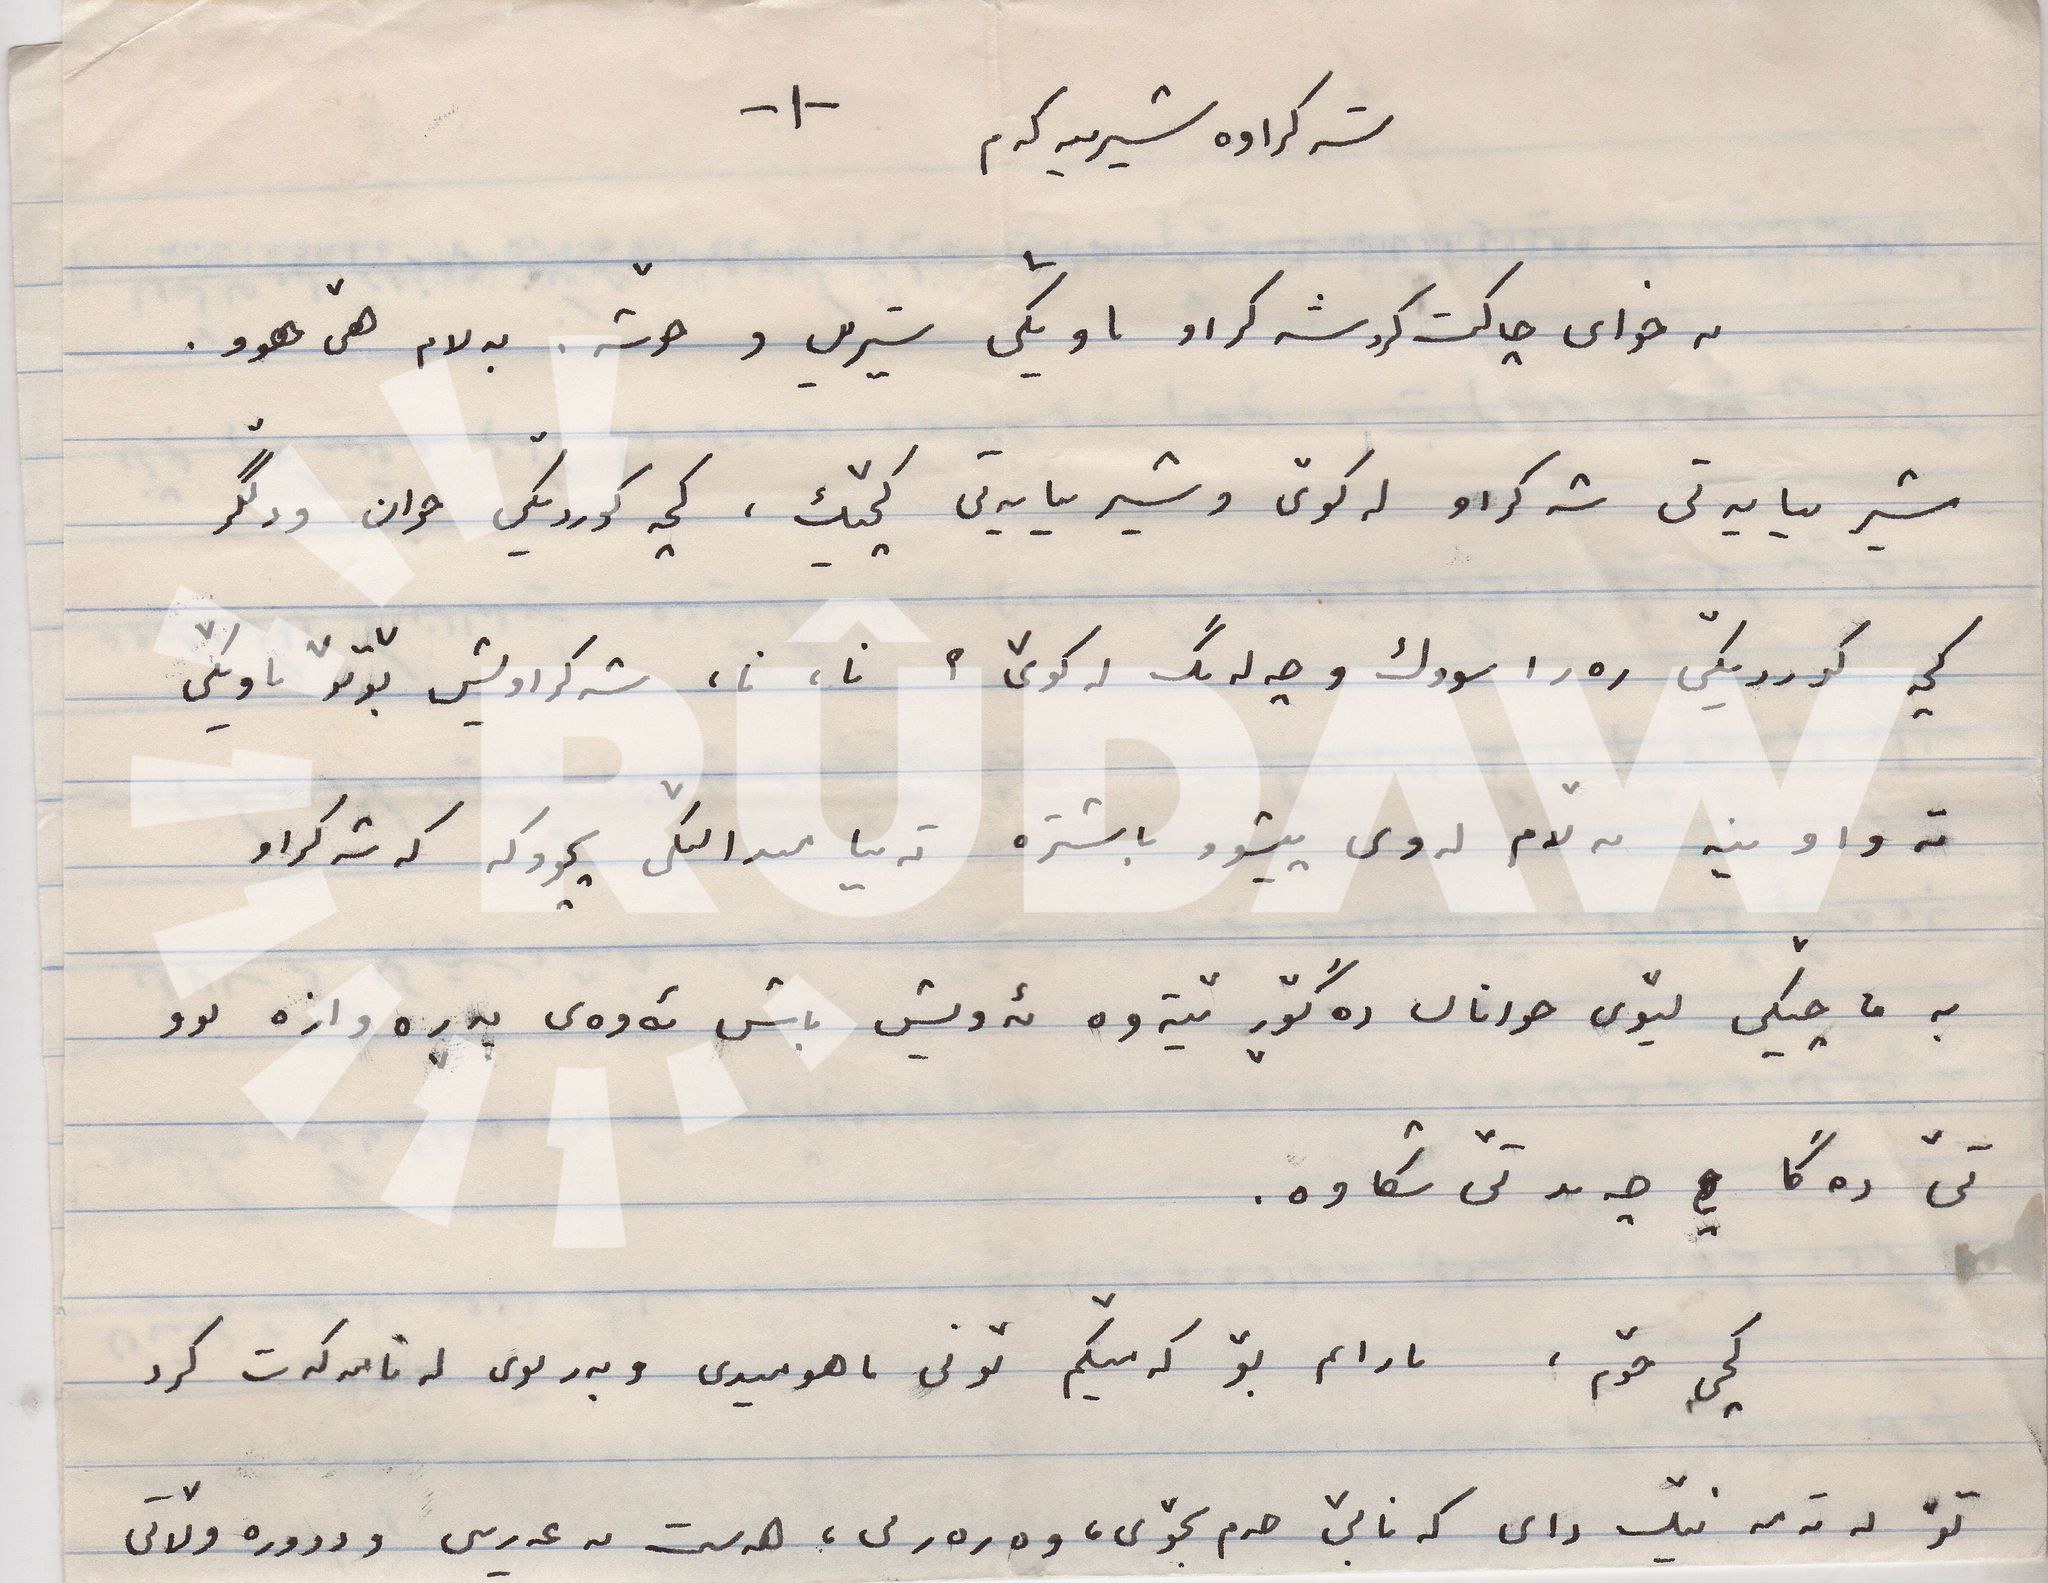 -١-
شەکراوە شیرینەکەم
بەخوای چاکت کرد شەکراو ناوێکی شیرین و خۆشە. بەلام هێ هوو.
شیرینایەتی شەکراو لەکوێ و شیرینایەتی کچێک، کچە کوردێکی جوان ودڵگر
کچە کوردێکی رەزا سووک و چەلەنگ لەکوێ؟ نا، نا، شەکراویش بۆتۆ ناوێکی
تەواو نیە بەڵام لەوی پێشوو باشترە تەنیا منداڵێکی بچووکە کە شەکراو
بە ماچێکی لێوی جوانان دەگۆڕێتەوە ئەویش باش ئەوەی پەڕەوازە بوو
تێ دەگا چەند تێ شکاوە.
کچی خۆم، نازانم بۆ کەمێکم بۆنی ناهومیدی و بەزیوی لە نامەکەت کرد
تۆ لە تەمەنێک دای کە نابێ خەم بخۆی، وەرەز بی، هەست بە غەریبی و دوورە وڵاتی
RÛDAW